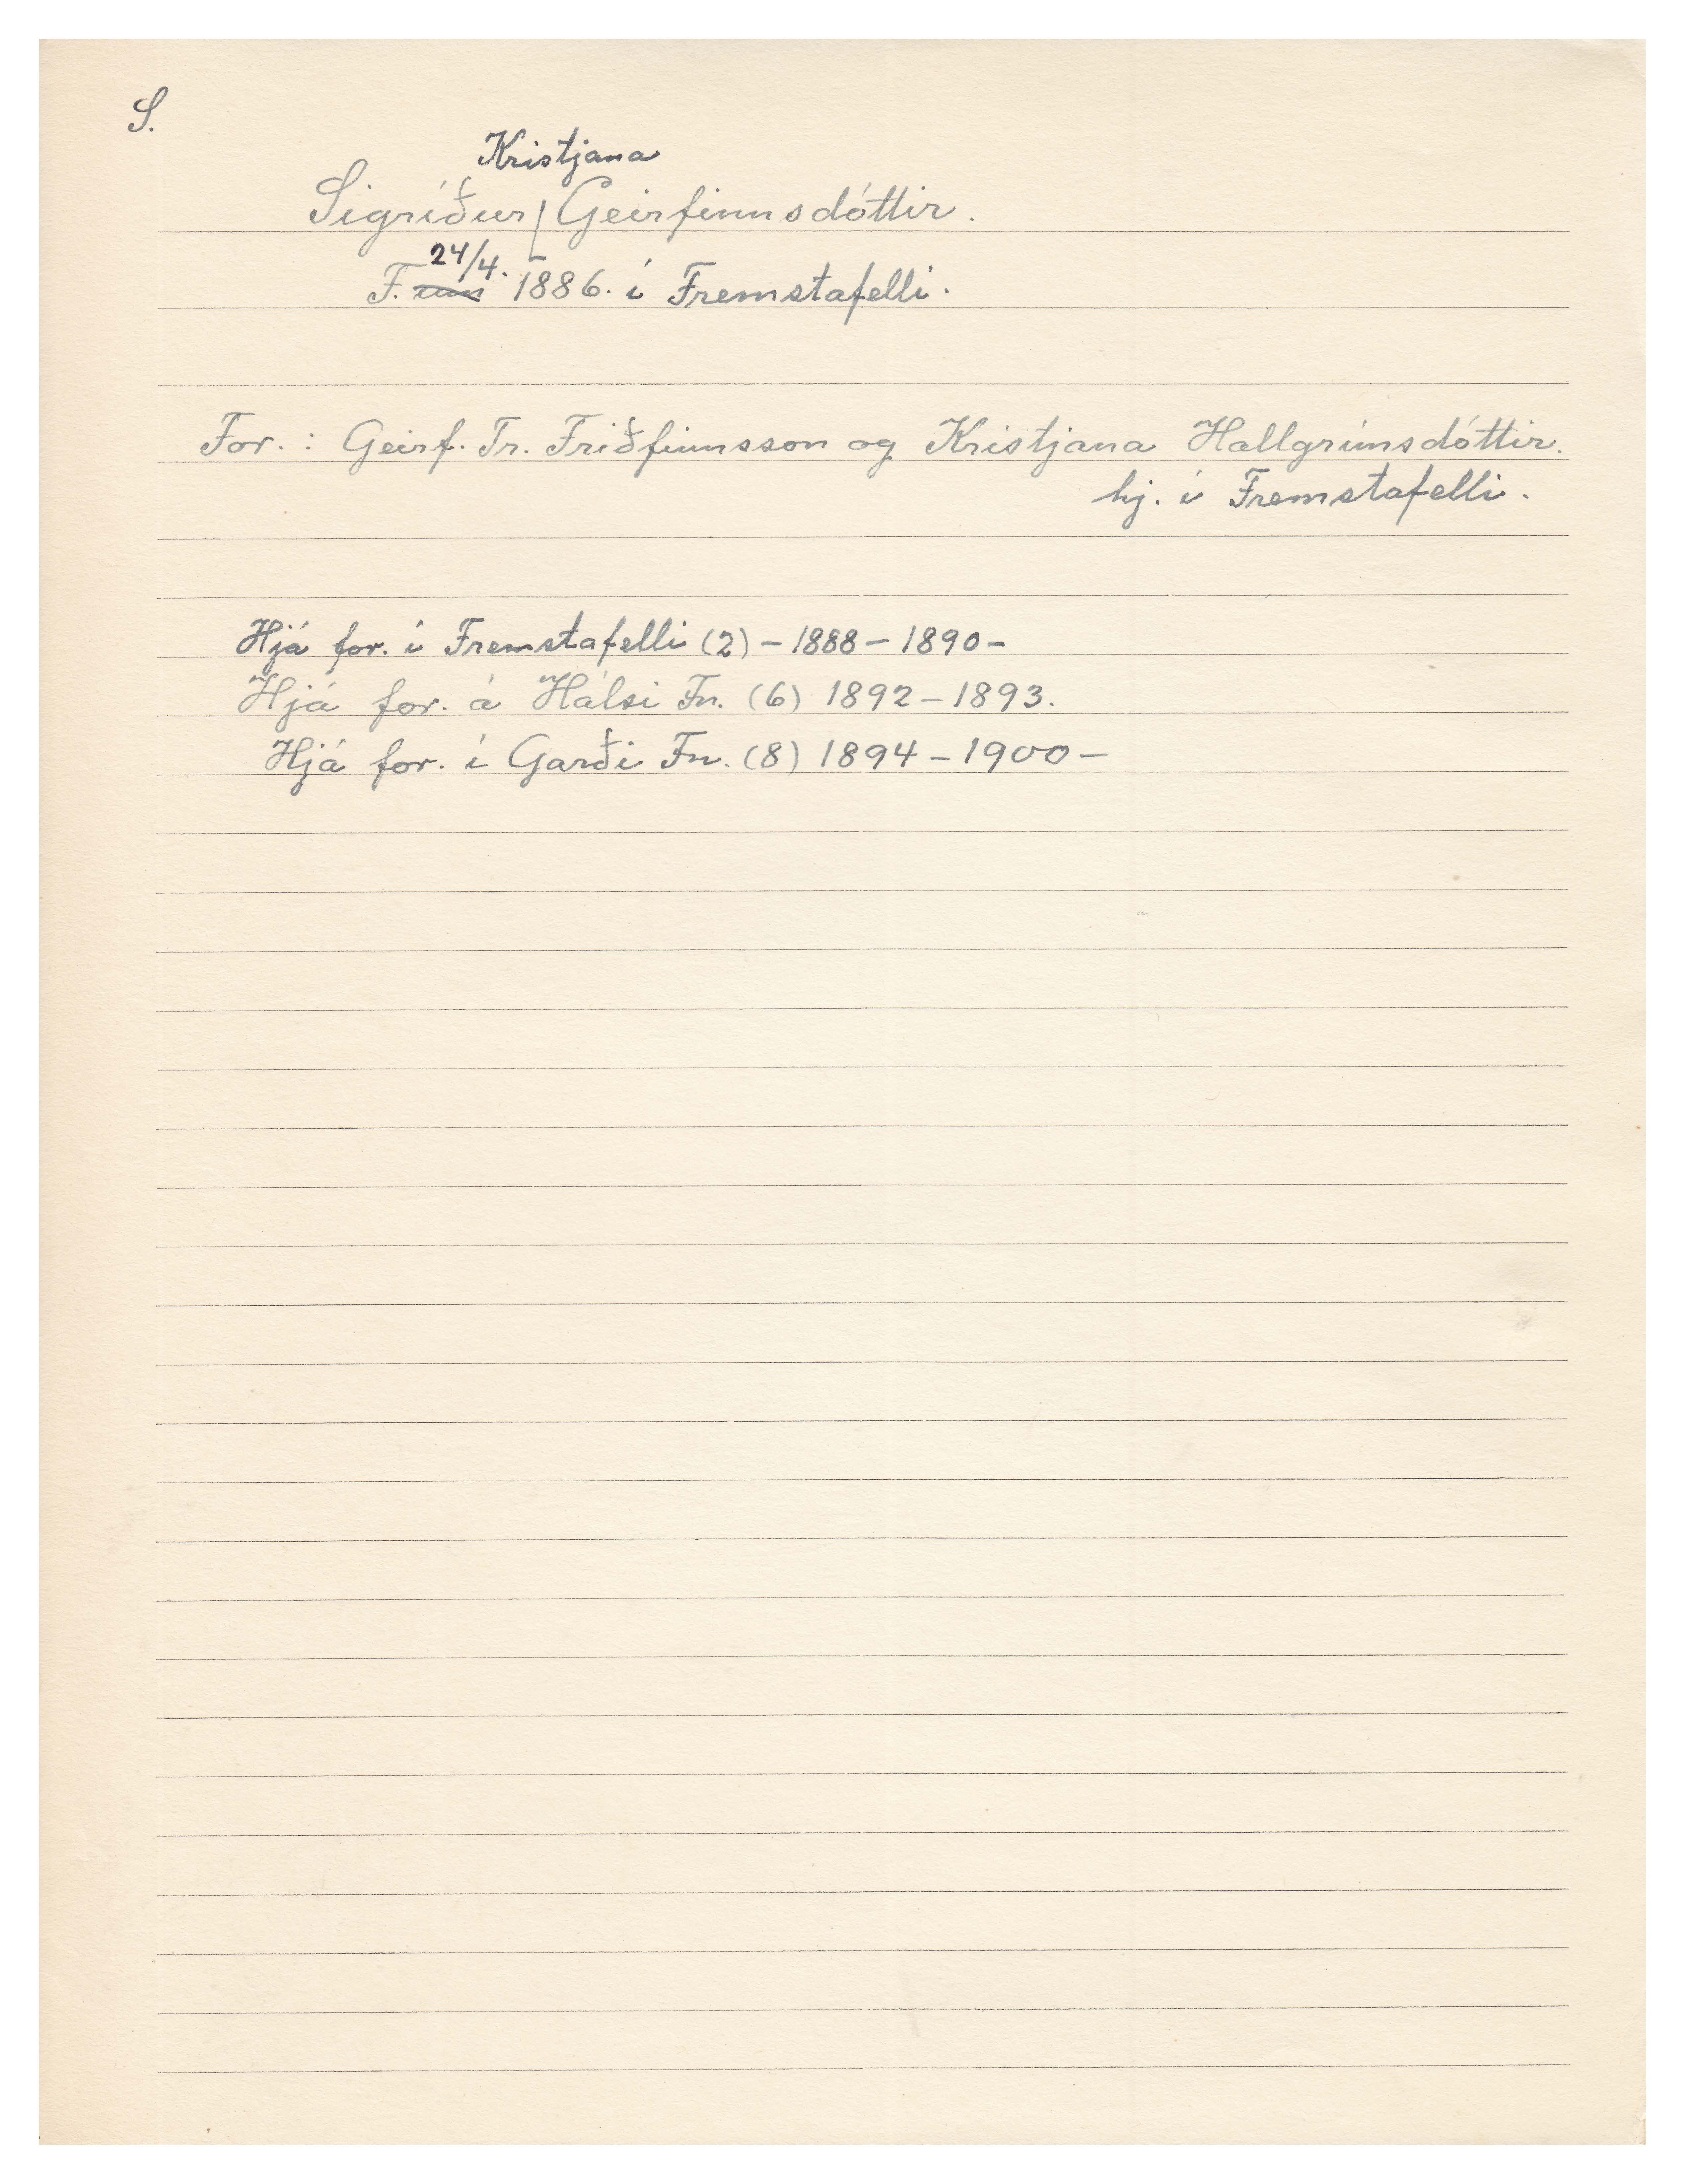 S.
Kristjana
Sigríður Geirfinnsdóttir.
24/4.
F. 1886. í Fremstafelli.
For.: Geirf. Tr. Friðfinnsson og Kristjana Hallgrímsdóttir.
hj. í Fremstafelli.
Hjá for. í Fremstafelli (2) – 1888 – 1890 –
Hjá for. á Hálsi Fn. (6) 1892 – 1893.
Hjá for. í Garði Fn. (8) 1894 – 1900 –